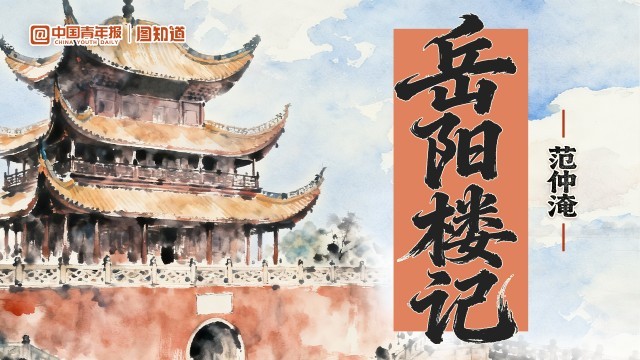 @中国青年报
CHINA YOUTH DAILY
图知道
岳阳楼记
范仲淹